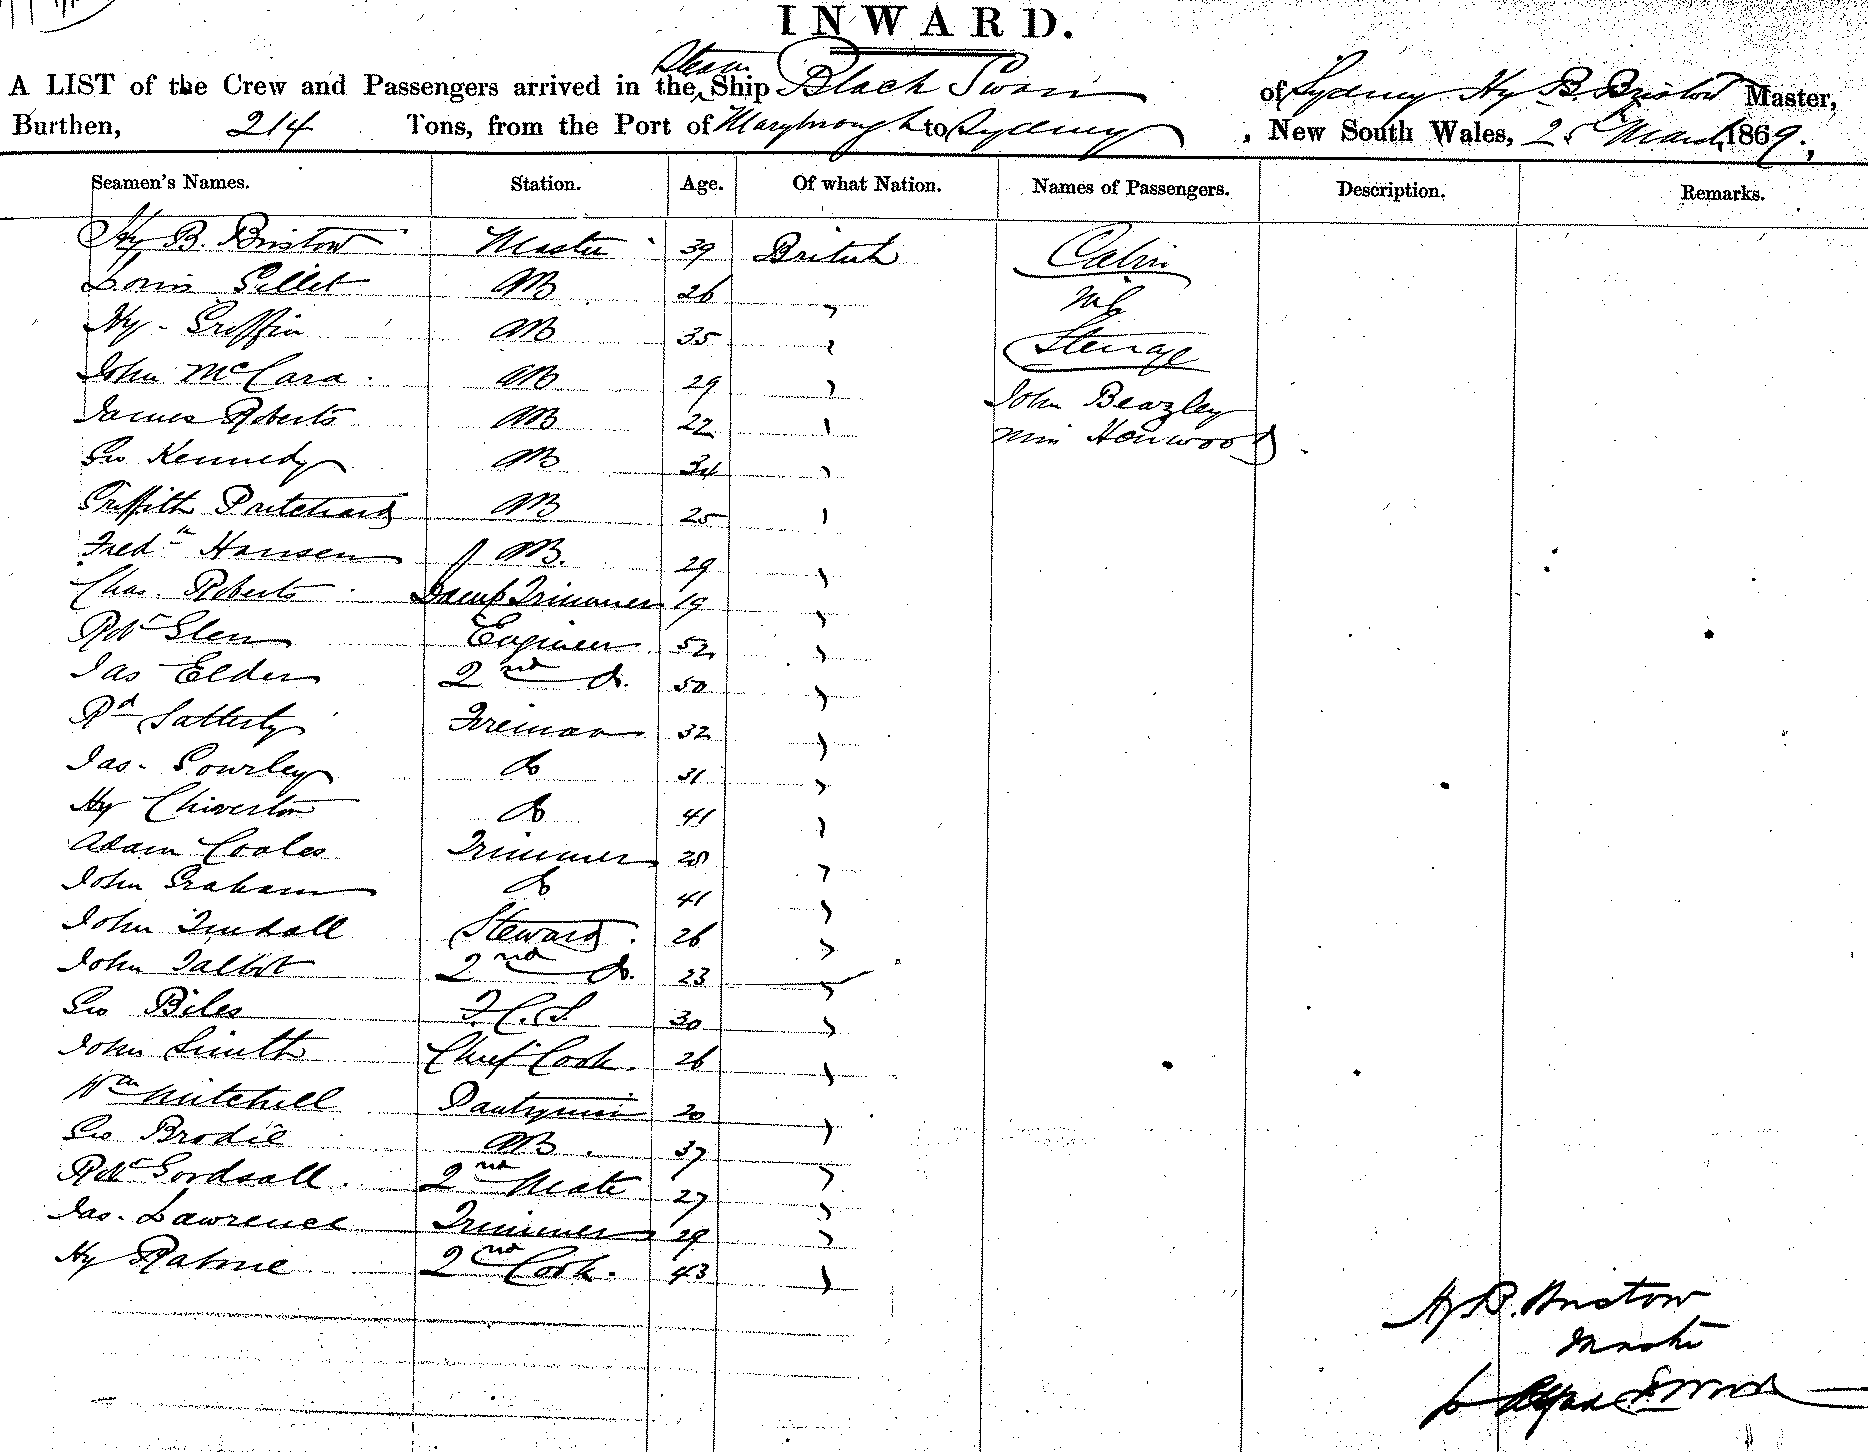 INWARD.
A LIST of the Crew and Passengers arrived in the Steam Ship Black Swan of Sydney Hy B. Bristow Master,
Burthen, 214 Tons, from the Port of Maryborough to Sydney, New South Wales, 25th March 1869.
Seamen's Names. Station. Age. Of what Nation. Names of Passengers. Description. Remarks.
Hy B. Bristow Master 39 British Cabin
Louis Gillet AB 26 " Nil
Hy - Griffin AB 35 " Steerage
John McCara AB 29 " John Beazley
James Roberts AB 22 " Henwood
Geo Kennedy AB 34 "
Griffith Pritchard AB 25 "
Fredk Hansen AB. 29 "
Chas. Roberts Lamp Trimmer 19 "
Robt Glen Engineer 52 "
Jas Elder 2nd Do. 50 "
Rd Satterly Fireman 32 "
Jas. Gourley Do 31 "
Hy Chiverton Do 41 "
Adam Coales Trimmer 28 "
John Graham Do 41 "
John Tindall Steward. 26 "
John Talbot 2nd Do. 23 "
Geo Biles F.C.S 30 "
John Smith Chief Cook. 26 "
Wm Mitchell Pantryman 20 "
Geo Brodie AB. 37 "
Robt Gordsall. 2nd Mate 27 "
Jas. Lawrence Trimmer 29 "
Hy 2nd Cook. 43 "
Hy B. Bristow
Master